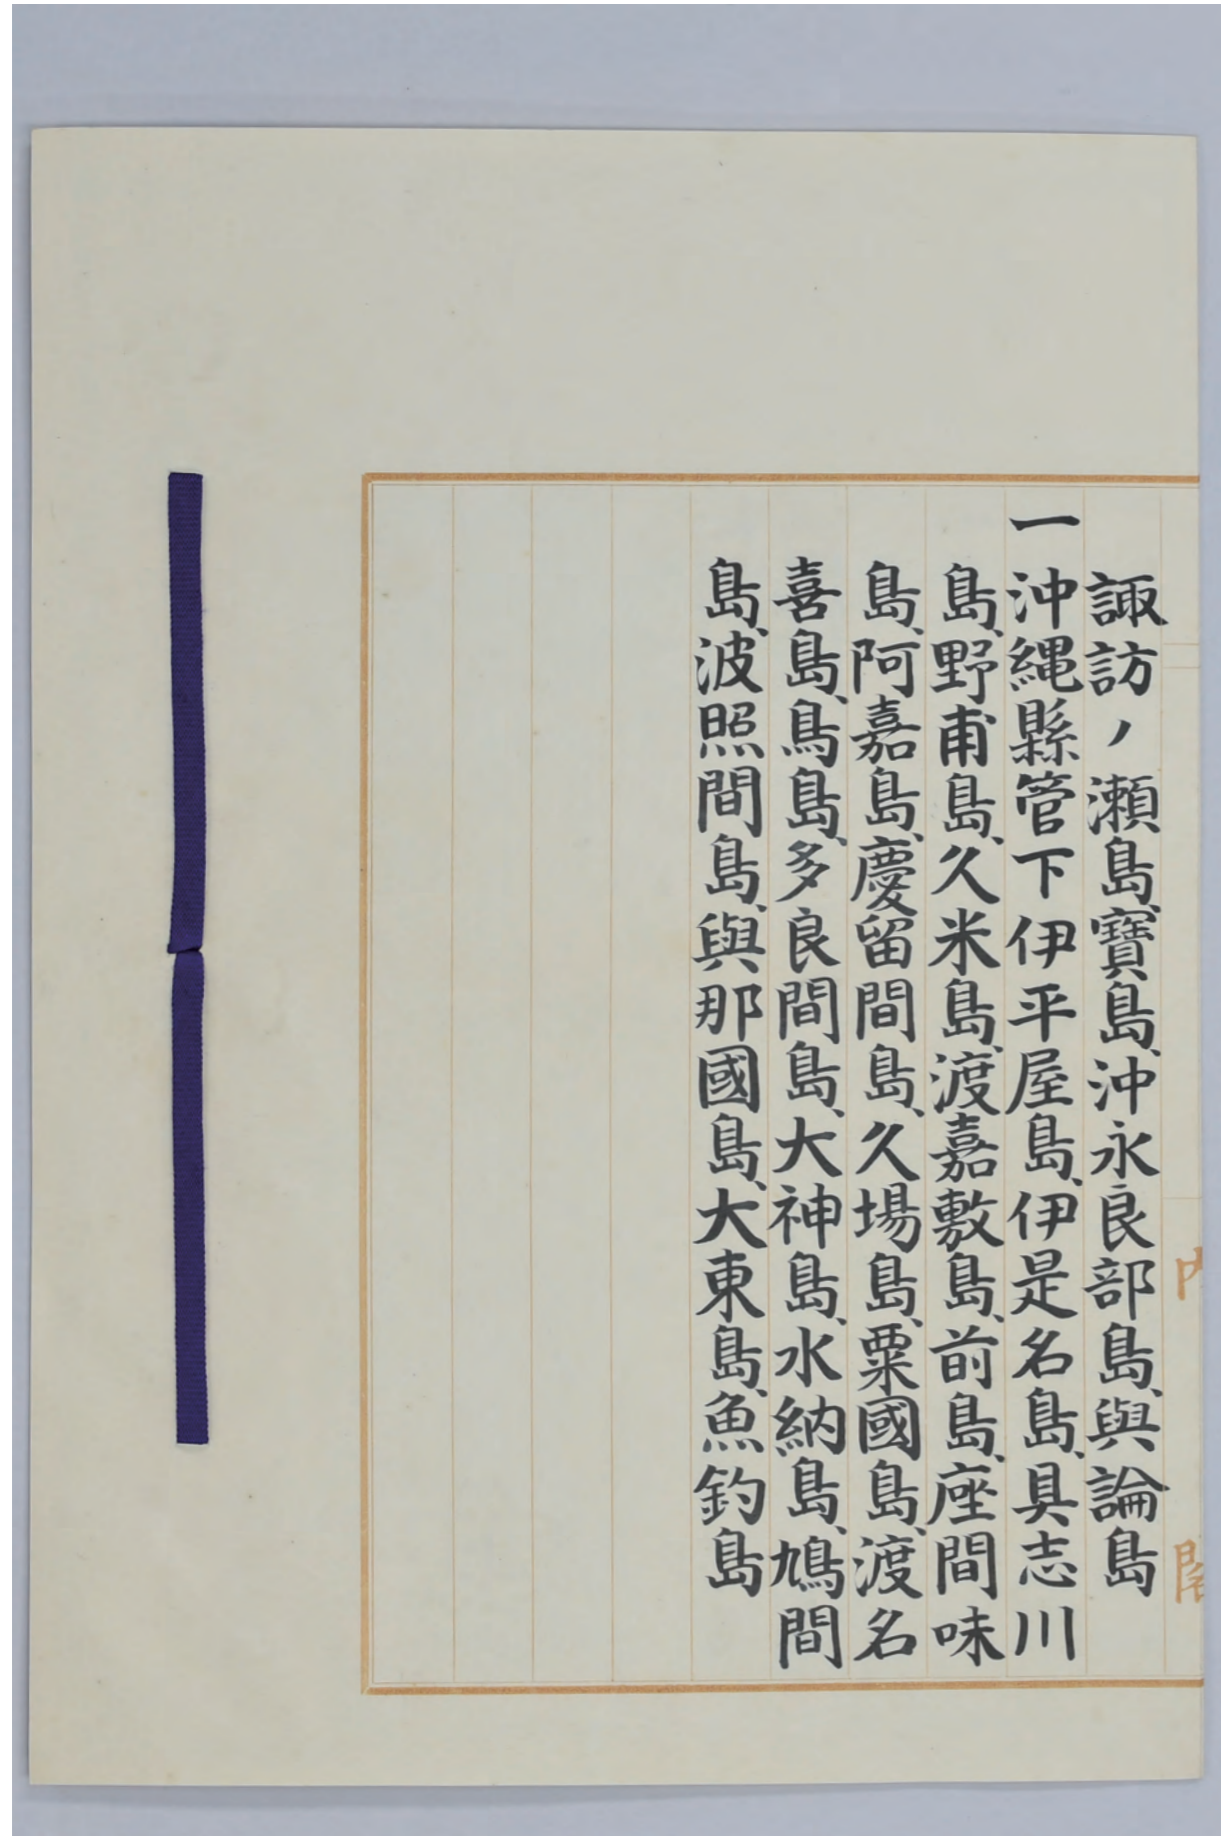 諏訪ノ瀬島、寶島、沖永良部島、與論島
一沖縄縣管下伊平屋島、伊是名島、具志川
島、野甫島、久米島、渡嘉敷島、前島、座間味
島、阿嘉島、慶留間島、久場島、粟國島、渡名
喜島、鳥島、多良間島、大神島、水納島、鳩間
島、波照間島、與那國島、大東島、魚釣島